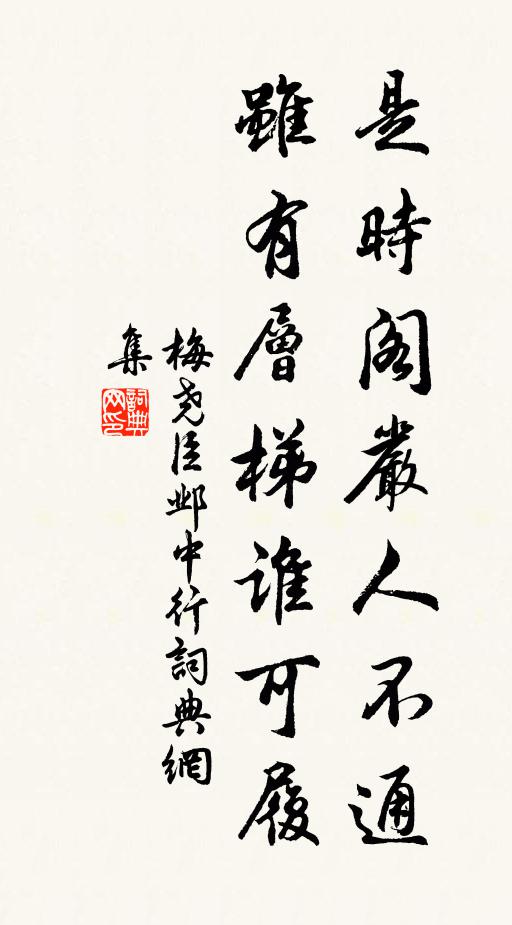 是時閣嚴人不通
雖有層梯誰可履
梅堯臣鄴中行詞典網
集
詞典
网印